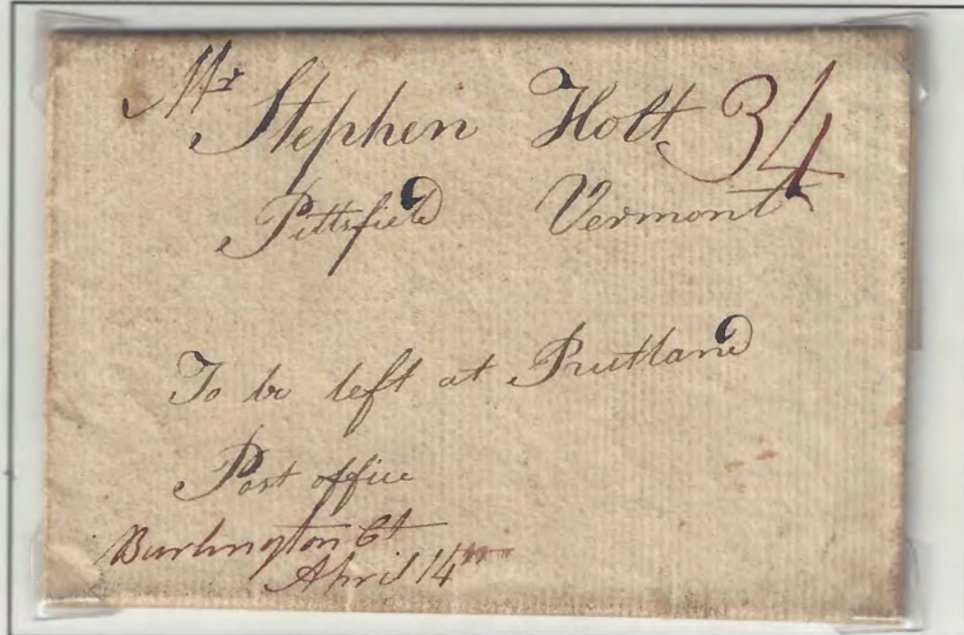 Mr Stephen Holt 34
Pittsfield Vermont
To be left at Rutland
Post office
Burlington Ct
April 14th